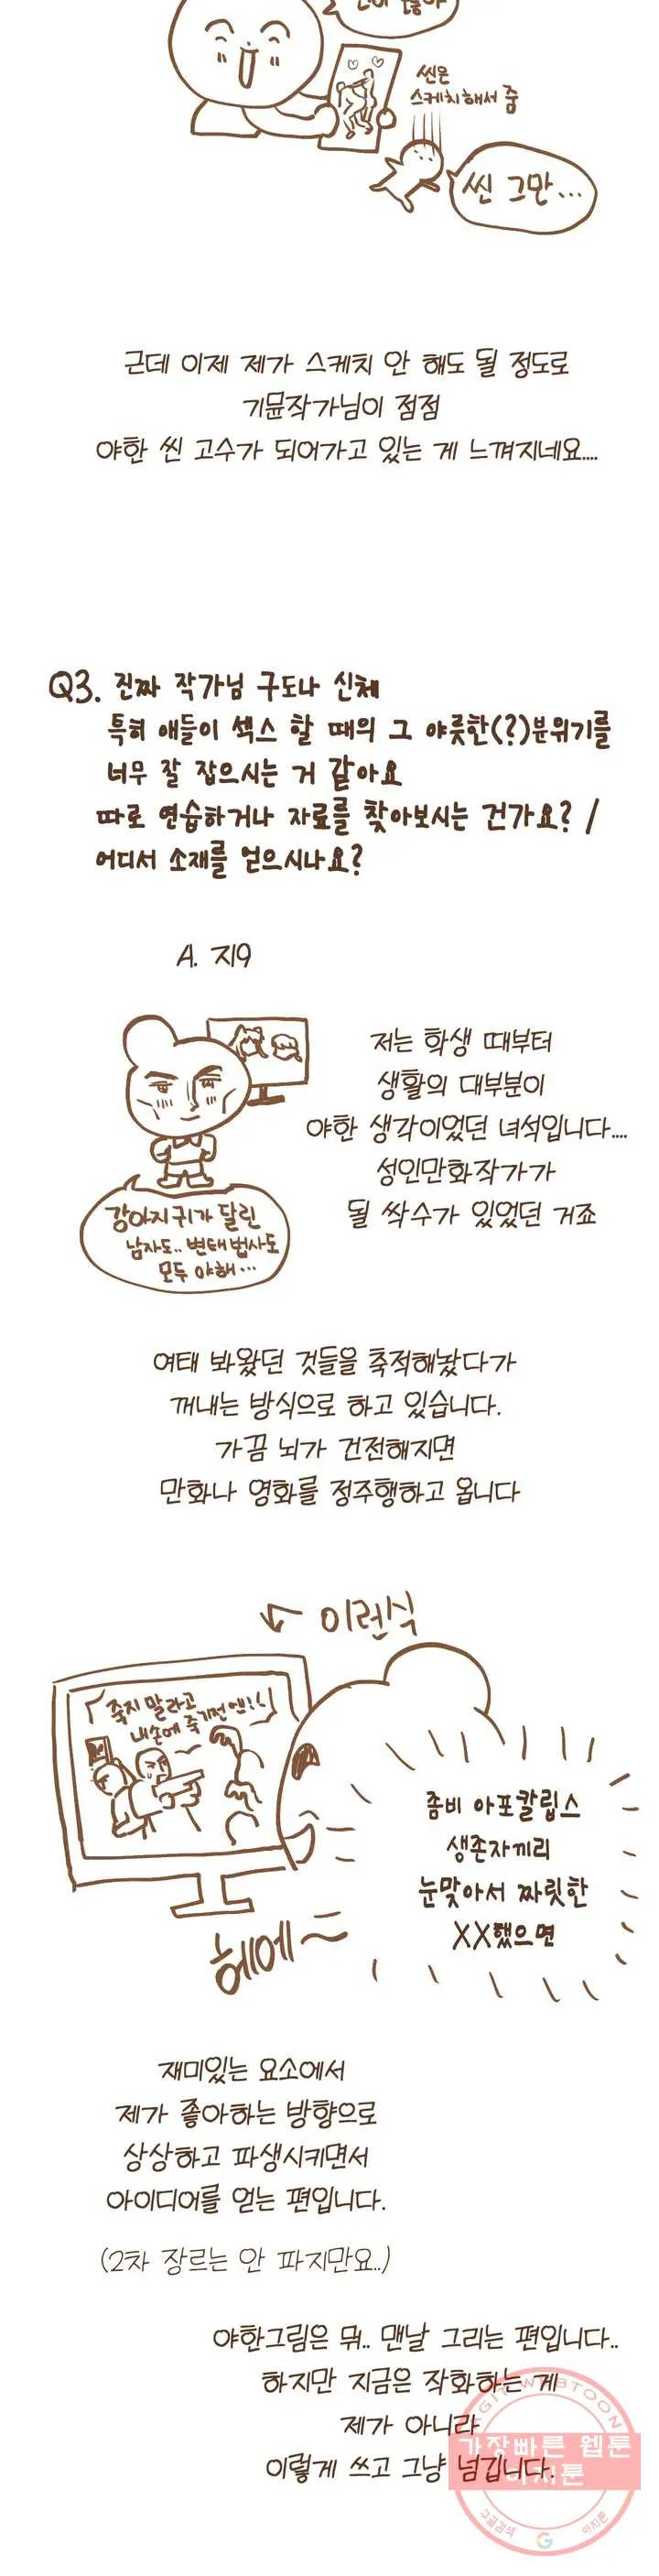 씬은
스케치해서 줌
씬 그만...
근데 이제 제가 스케치 안 해도 될 정도로
기뮨작가님이 점점
야한 씬 고수가 되어가고 있는 게 느껴지네요....
Q3. 진짜 작가님 구도나 신체
특히 애들이 섹스 할 때의 그 야릇한(?)분위기를
너무 잘 잡으시는 거 같아요
따로 연습하거나 자료를 찾아보시는 건가요? /
어디서 소재를 얻으시나요?
A. 지9
저는 학생 때부터
생활의 대부분이
야한 생각이었던 녀석입니다....
성인만화작가가
될 싹수가 있었던 거죠
강아지 귀가 달린
남자도.. 변태법사도
모두 야해...
여태 봐왔던 것들을 축적해놨다가
꺼내는 방식으로 하고 있습니다.
가끔 뇌가 건전해지면
만화나 영화를 정주행하고 옵니다
← 이런식
죽지 말라고
내손에 죽기전엔!!
좀비 아포칼립스
생존자끼리
눈맞아서 짜릿한
XX했으면
헤에~
재미있는 요소에서
제가 좋아하는 방향으로
상상하고 파생시키면서
아이디어를 얻는 편입니다.
(2차 장르는 안 파지만요..)
야한그림은 뭐.. 맨날 그리는 편입니다..
하지만 지금은 작화하는 게
제가 아니라
이렇게 쓰고 그냥 넘깁니다.
AGIT WEBTOON
가장빠른 웹툰
아지툰
구글검색
아지툰